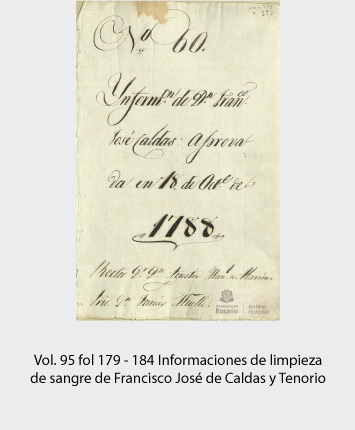 No 60.
Ynformn. de Dn. Franco.
José Caldas: Aprova
da en 18, de Octe. de
1788
Rector Dr. Dn. Agustin Manl. de
Dn. Tomás
Universidad del
Rosario
Archivo
Histórico
Vol. 95 fol 179 - 184 Informaciones de limpieza
de sangre de Francisco José de Caldas y Tenorio